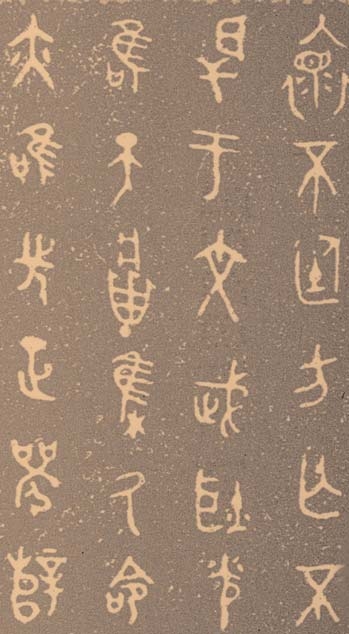 褱不廷方亡不
閈于文武耿光
唯天將集厥命
亦唯先正襄辥